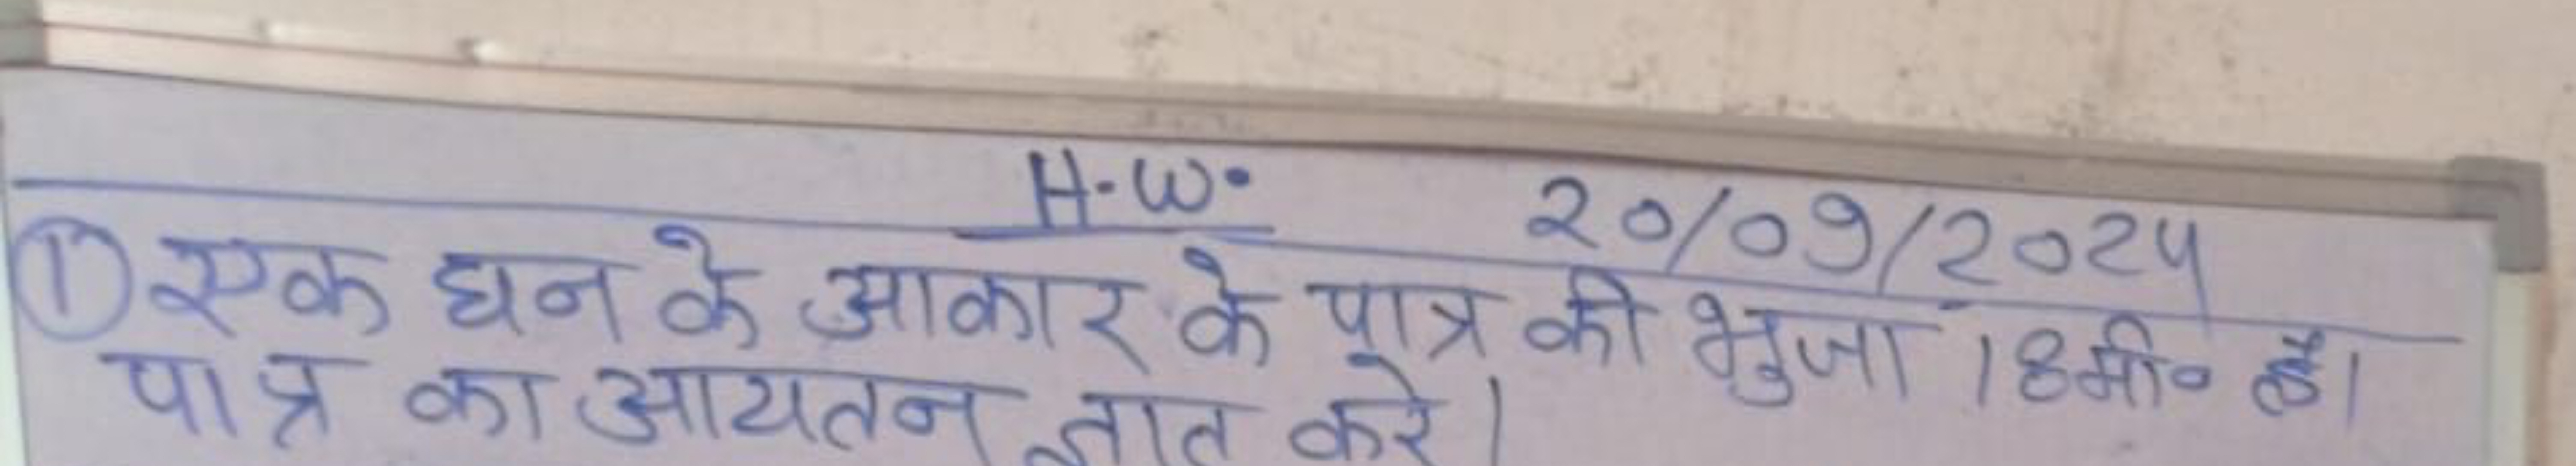 H.W. 20/09/2024
① एक घन के आकार के पात्र की भुजा 18मी० है।
पात्र का आयतन ज्ञात करे।